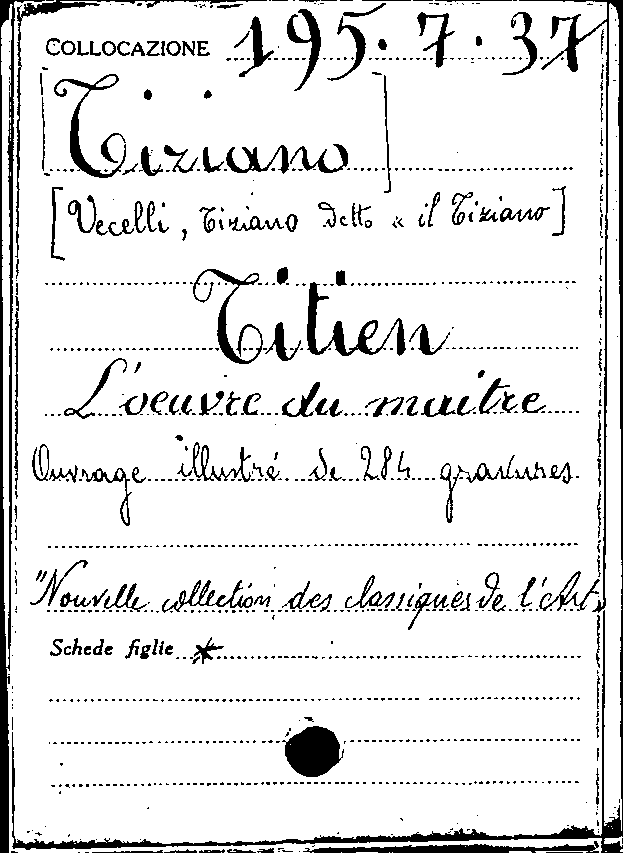 COLLOCAZIONE 195.7.37
[Tiziano]
[Vecelli, Tiziano detto « il Tiziano]
Titien
L'oeuvre du maitre
Ouvrage illustré de 284 gravures
"Nouvelle collection des classiques de l'Art„
Schede figlie *